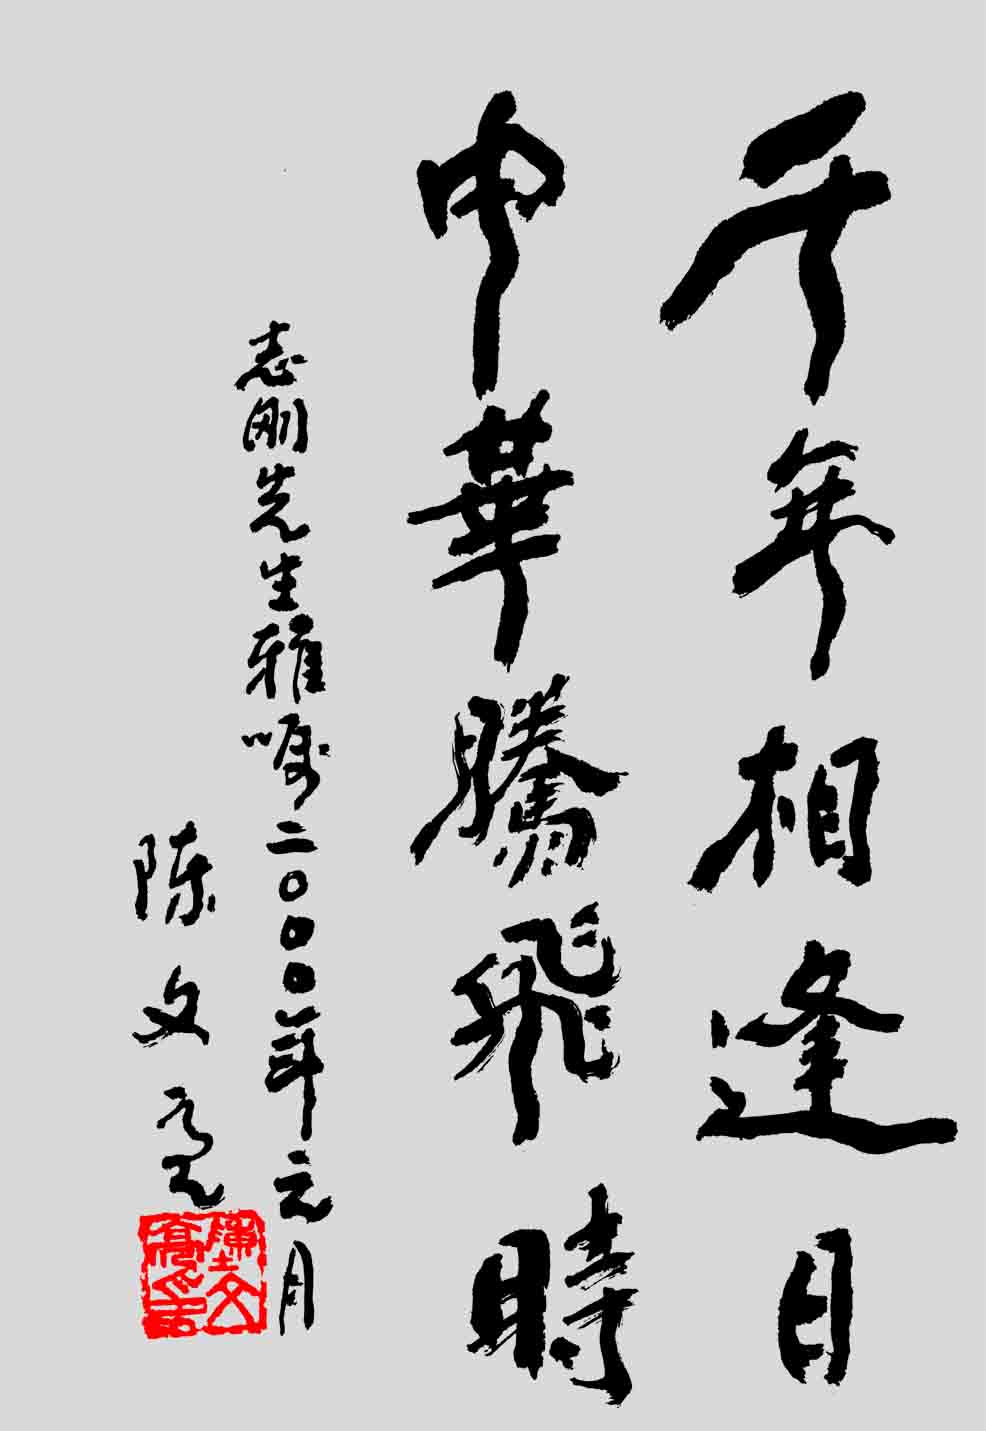 千年相逢日
中華騰飛時
志刚先生雅嘱二〇〇〇年元月
陈文亮
陳文亮印